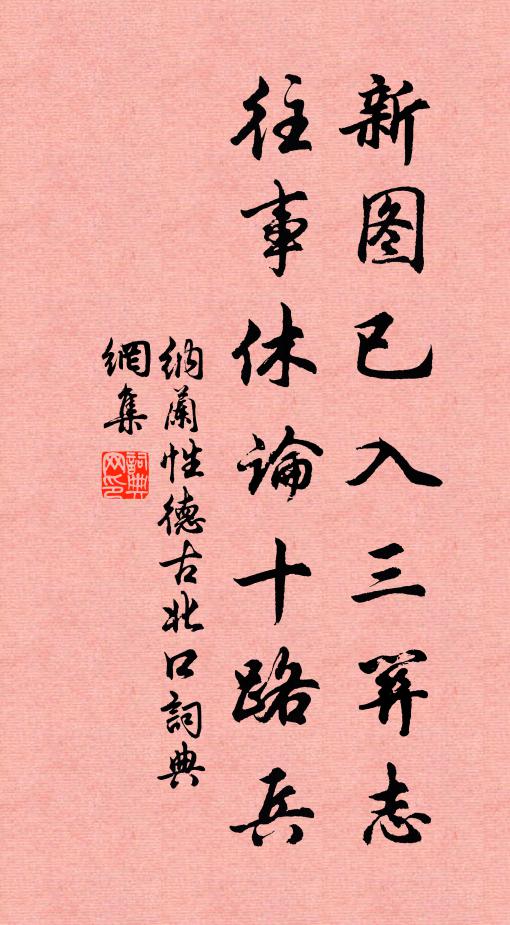 新图已入三关志
往事休論十路兵
納蘭性德古北口詞典
網集
詞典
网印